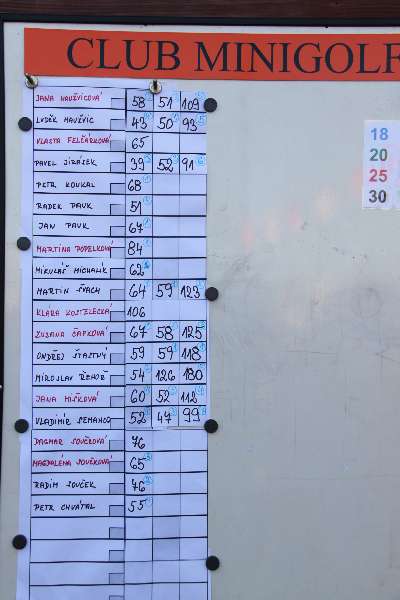 CLUB MINIGOLF
JANA NAUŽVICOVÁ 58 51 109
LUDĚK NAUŽVIC 43 50 93
VLASTA FELČÁRKOVÁ 65
PAVEL JIRÁSEK 39 52 91
PETR KOUKAL 68
RADEK PAUK 51
JAN PAUK 67
MARTINA POPELKOVÁ 84
MIKULÁŠ MICHALÍK 62
MARTIN ŠVACH 64 59 123
KLARA KOSTELECKÁ 106
ZUZANA ČAPKOVÁ 67 58 125
ONDŘEJ ŠŤASTNÝ 59 59 118
MIROSLAV ŘEHOŘ 54 126 180
JANA MIŠKOVÁ 60 52 112
VLADIMÍR 52 47 99
DAGMAR SOUČKOVÁ 76
MAGDALÉNA SOUČKOVÁ 65
RADIM SOUČEK 46
PETR CHVÁTAL 55
18
20
25
30